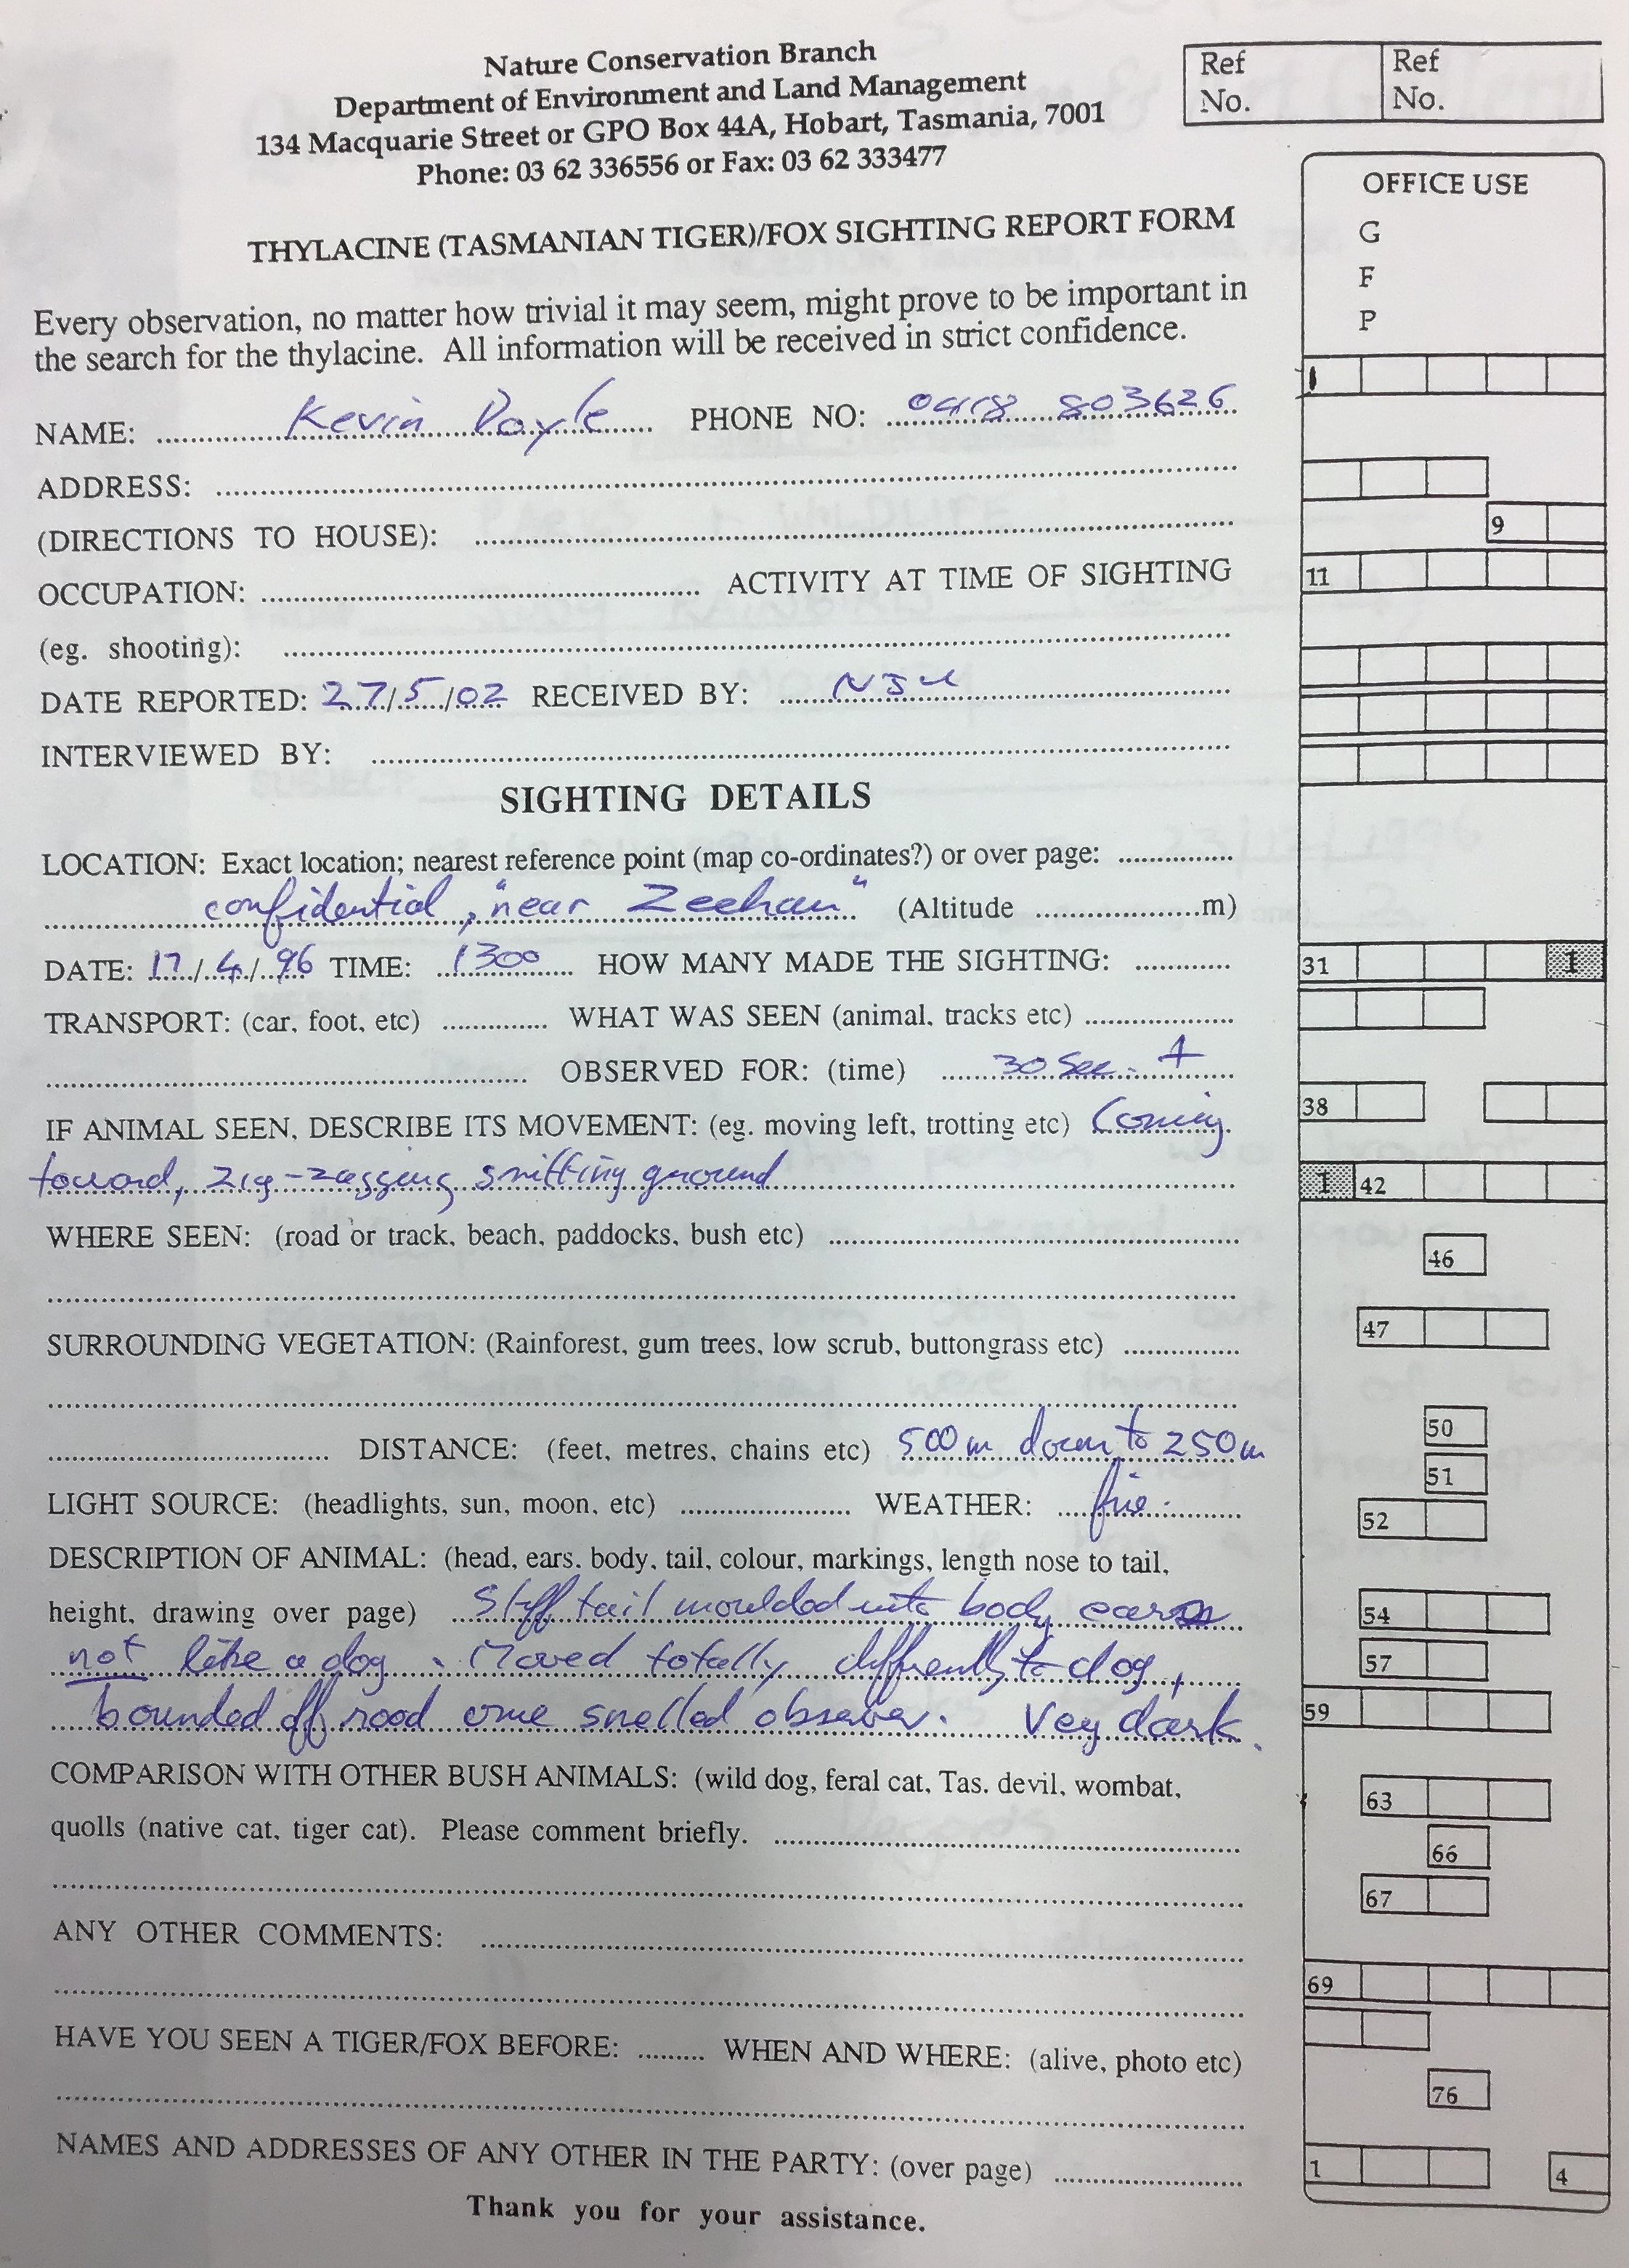 Nature Conservation Branch
Department of Environment and Land Management
134 Macquarie Street or GPO Box 44A, Hobart, Tasmania, 7001
Phone: 03 62 336556 or Fax: 03 62 333477
Ref No.
Ref No.
THYLACINE (TASMANIAN TIGER)/FOX SIGHTING REPORT FORM
Every observation, no matter how trivial it may seem, might prove to be important in
the search for the thylacine. All information will be received in strict confidence.
NAME: Kevin Doyle PHONE NO: 0418 803626
ADDRESS:
(DIRECTIONS TO HOUSE):
OCCUPATION: ACTIVITY AT TIME OF SIGHTING
(eg. shooting):
DATE REPORTED: 27/5/02 RECEIVED BY:
INTERVIEWED BY:
SIGHTING DETAILS
LOCATION: Exact location; nearest reference point (map co-ordinates?) or over page:
confidential, "near Zeehan" (Altitude m)
DATE: 17/4/96 TIME: 1300 HOW MANY MADE THE SIGHTING:
TRANSPORT: (car, foot, etc) WHAT WAS SEEN (animal, tracks etc)
OBSERVED FOR: (time) 30 sec. +
IF ANIMAL SEEN, DESCRIBE ITS MOVEMENT: (eg. moving left, trotting etc) Coming
toward, zig-zagging sniffing ground
WHERE SEEN: (road or track, beach, paddocks, bush etc)
SURROUNDING VEGETATION: (Rainforest, gum trees, low scrub, buttongrass etc)
DISTANCE: (feet, metres, chains etc) 500m down to 250m
LIGHT SOURCE: (headlights, sun, moon, etc) WEATHER: fine.
DESCRIPTION OF ANIMAL: (head, ears, body, tail, colour, markings, length nose to tail,
height, drawing over page) Stiff tail moulded into body ears
not like a dog. Moved totally differently to dog,
bounded off road once smelled observer. Very dark.
COMPARISON WITH OTHER BUSH ANIMALS: (wild dog, feral cat, Tas. devil, wombat,
quolls (native cat, tiger cat). Please comment briefly.
ANY OTHER COMMENTS:
HAVE YOU SEEN A TIGER/FOX BEFORE: WHEN AND WHERE: (alive, photo etc)
NAMES AND ADDRESSES OF ANY OTHER IN THE PARTY: (over page)
Thank you for your assistance.
OFFICE USE
G
F
P
1
9
11
31 I
38
I 42
46
47
50
51
52
54
57
59
63
66
67
69
76
1 4